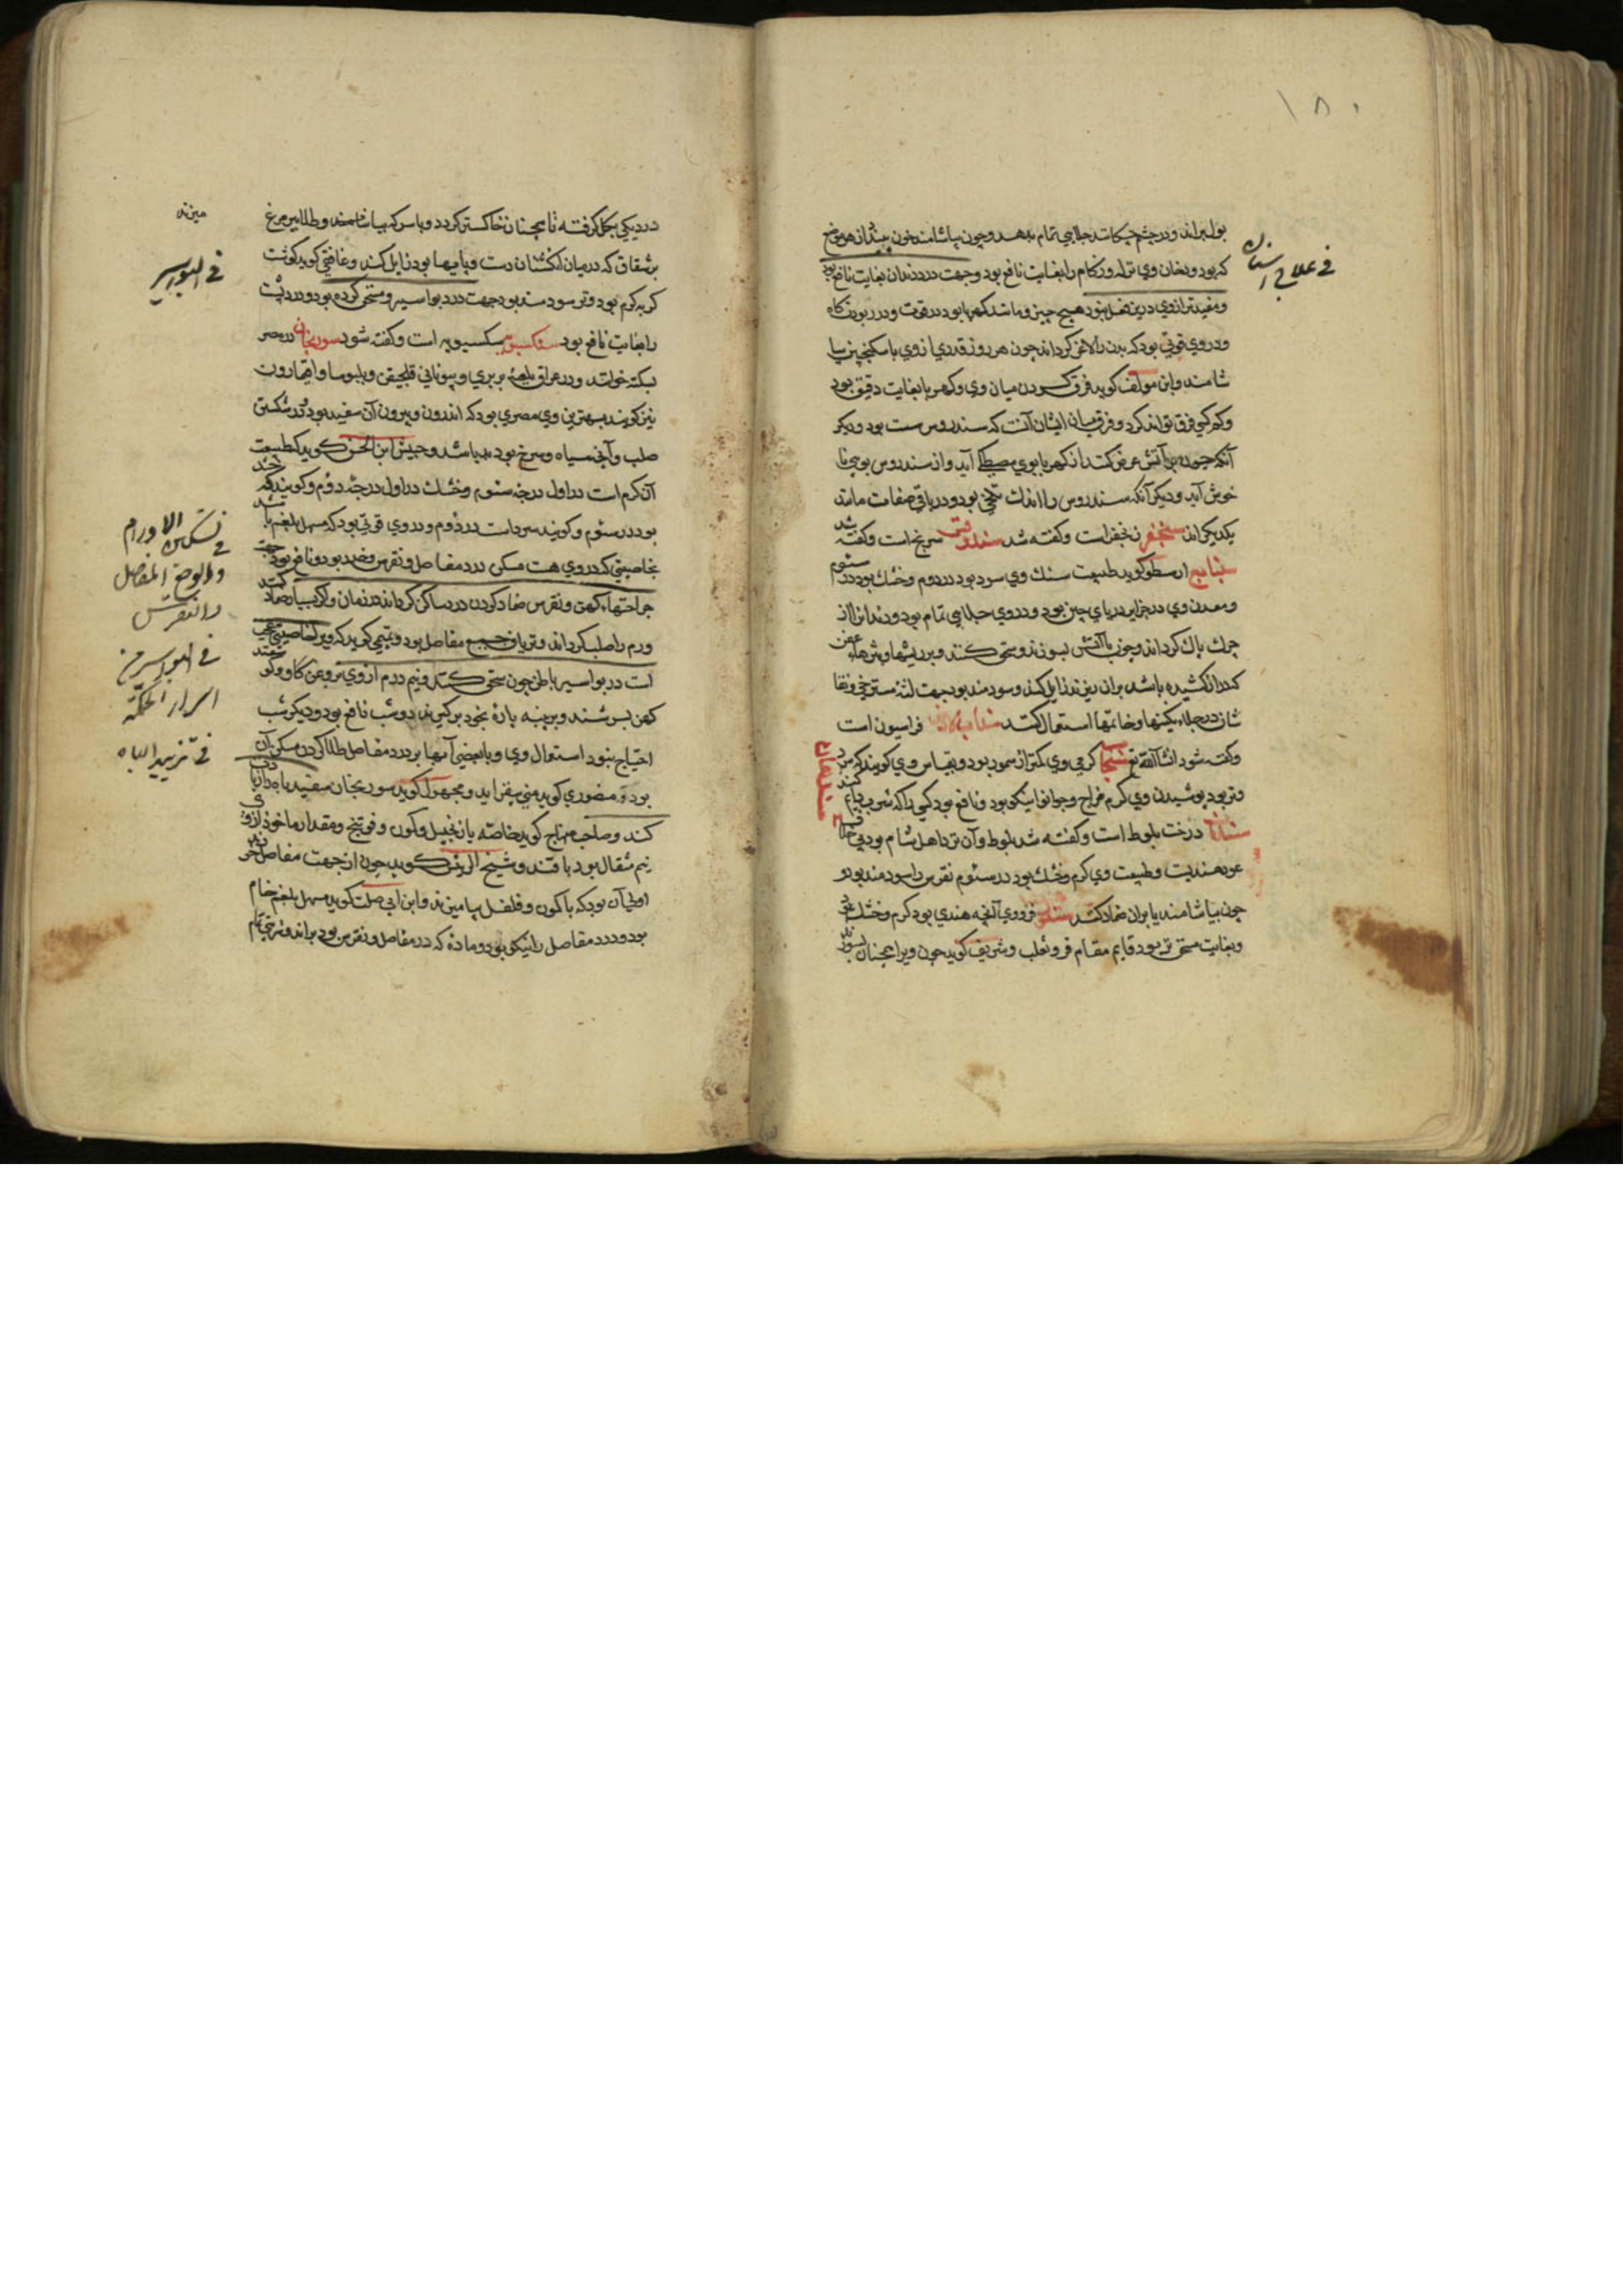 ١٨٠
بول براند و در چشم چکانند جلایی تمام بدهد و چون بیاشامند خون ببندد از هر موضع
که بود و دخان وی نزله و زکام را بغایت نافع بود و جهت درد دندان بغایت نافع بود
فی علاج اسنان
و مفیدتر از وی درین فصل نبود هیچ چیز و مانند کهربا بود در قوت و در ربودن کاه
و در وی قوتی بود که بدن را لاغر گرداند چون هر روز قدری از وی با سکنجبین بیا
شامند و این مولف گوید فرق کردن میان وی و کهربا بغایت دقیق بود
و کم کسی فرق تواند کرد و فرق میان ایشان آنست که سندروس سست بود و دیگر
آنکه چون بر آتش عرض کنند از کهربا بوی مصطکی آید و از سندروس بوی نا
خوش آید و دیگر آنکه سندروس را اندک تلخی بود و در باقی صفات مانند
یکدیگراند سنجفر زنجفر است و گفته شد سندوقس سرنج است و گفته شد
سنباذج ارسطو گوید طبیعت سنگ وی سرد بود در دوم و خشک بود در سئوم
و معدن وی در جزایر دریای چین بود و در وی جلایی تمام بود و دندانرا از
چرک پاک گرداند و چون باآتش بسوزند و سحق کنند و بر ریشها و بثرهاء عفن
که دراز کشیده باشد بران ریزند زایل کند و سودمند بود جهت لثهٔ مسترخی و نقا
شان در جلاء نگینها و خاتمها استعمال کنند فراسیون است
و گفته شود انشاالله تع سنجاب گرمی وی کمتر از سمور بود و بقیاس وی گویند که سرد
و تر بود پوشیدن وی گرم مزاج و جوانرا نیکو بود و نافع بود کسی را که
سندیان درخت بلوط است و گفته شد بلوط و آن نزد اهل شام بود
عود هندیست و طبیعت وی گرم و خشک بود در سئوم نقرس را سودمند بود و
چون بیاشامند یا بران ضماد کنند سنور فروی آنچه هندی بود گرم و خشک
و بغایت مسخن تر بود قایم مقام فرو ثعلب و شریف گوید چون ویرا همچنان بسوزد
در دیگی بگل گرفته تا همچنان خاکستر گردد و با سرکه بیاشامند و طلا ببر مرغ
میزند
بر شقاق که در میان انگشتان دست و پایها بود زایل کند و غافقی گوید گوشت
فی البواسیر
گربه گرم بود و تر سودمند بود جهت درد بواسیر و مسخن گرده بود و درد پشت
را بغایت نافع بود سنکسبویه سکسبویه است و گفته شود سورنجان در مصر
بیکنه خوانند و در عراق لعبهٔ بربری و بیونانی قلجیقن و بلبوسا و اقمارون
نیز گویند بهترین وی مصری بود که اندرون و بیرون آن سفید بود و در شکستن
صلب و آنچه سیاه و سرخ بود بد باشد و حبیش ابن الحسن گوید که طبیعت
آن گرم است در اول درجهٔ سئوم و خشک در اول درجهٔ دوم و گویند که
بود در سئوم و گویند سرد است در دوم و در وی قوتی بود که مسهل بلغم باشد
بخاصیتی که در وی هست مسکن درد مفاصل و نقرس و ضربه بود و نافع بود جهت
فی تسکین الاورام
جراحتهاء کهن و نقرس ضماد کردن درد ساکن گرداند در زمان و اگر بسیار ضماد کنند
والوجع المفصل
والنقرس
ورم را صلب گرداند و تریاق جمیع مفاصل بود و تمیمی گوید که ویرا خاصیتی عجیب
است در بواسیر باطن چون سحق کنند و نیم درم از وی بروغن گاو و کو
فی البواسیر من
کهن بسرشند و بر پنبه پارهٔ بخود برگیرند دو شب نافع بود و دیگر شب
اسرار الحکمة
احتیاج نبود استعمال وی و با بعضی آبها بر درد مفاصل طلا کردن مسکن آن
فی تزیید الباه
بود و منصوری گوید منی بیفزاید و مجهول گوید سورنجان سفید باه را زیاد
کند و صاحب منهاج گوید خاصه با زنجبیل و کمون و فوتنج و مقدار ماخوذ از وی
نیم مثقال بود با قند و شیخ الرییس گوید چون از جهت مفاصل
اولی آن بود که با کمون و فلفل بیامیزند و ابن ابی صلت گوید مسهل بلغم خام
بود و درد مفاصل را نیکو بود و ماده که در مفاصل و نقرس بود براند و شربتی تمام